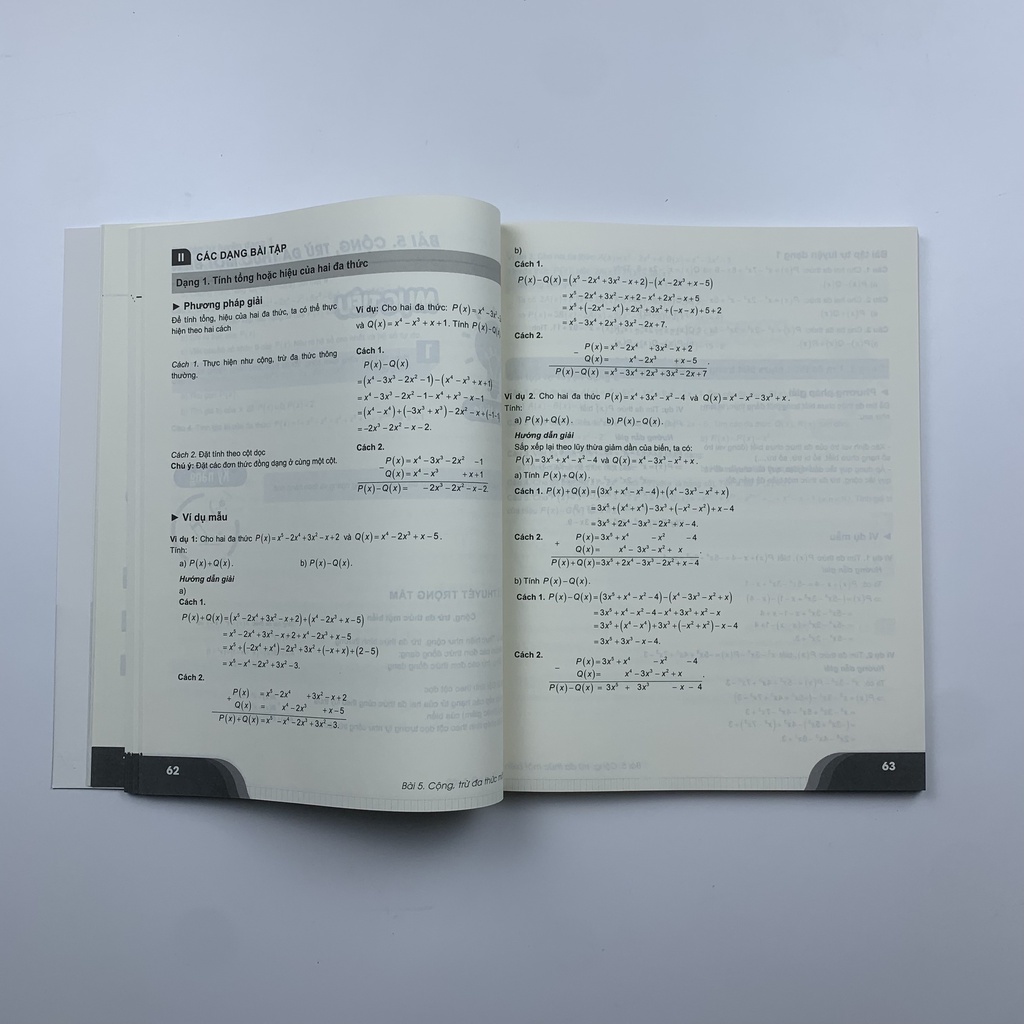 II CÁC DẠNG BÀI TẬP
Dạng 1. Tính tổng hoặc hiệu của hai đa thức
► Phương pháp giải
Để tính tổng, hiệu của hai đa thức, ta có thể thực
hiện theo hai cách
Cách 1. Thực hiện như cộng, trừ đa thức thông
thường.
Cách 2. Đặt tính theo cột dọc
Chú ý: Đặt các đơn thức đồng dạng ở cùng một cột.
Ví dụ: Cho hai đa thức: P(x)=x⁴−3x³
và Q(x)=x⁴−x³+x+1. Tính P(x)−Q(x)
Cách 1.
P(x)−Q(x)
=(x⁴−3x³−2x²−1)−(x⁴−x³+x+1)
=x⁴−3x³−2x²−1−x⁴+x³−x−1
=(x⁴−x⁴)+(−3x³+x³)−2x²−x+(−1−1
=−2x³−2x²−x−2.
Cách 2.
P(x)=x⁴−3x³−2x² −1
−
Q(x)=x⁴−x³ +x+1
P(x)−Q(x)= −2x³−2x²−x−2.
► Ví dụ mẫu
Ví dụ 1: Cho hai đa thức P(x)=x⁵−2x⁴+3x²−x+2 và Q(x)=x⁴−2x³+x−5.
Tính:
a) P(x)+Q(x). b) P(x)−Q(x).
Hướng dẫn giải
a)
Cách 1.
P(x)+Q(x)=(x⁵−2x⁴+3x²−x+2)+(x⁴−2x³+x−5)
=x⁵−2x⁴+3x²−x+2+x⁴−2x³+x−5
=x⁵+(−2x⁴+x⁴)−2x³+3x²+(−x+x)+(2−5)
=x⁵−x⁴−2x³+3x²−3.
Cách 2.
P(x) =x⁵−2x⁴ +3x²−x+2
+
Q(x) = x⁴−2x³ +x−5
P(x)+Q(x)=x⁵ −x⁴−2x³+3x²−3.
62
Bài 5. Cộng, trừ đa thức
b)
Cách 1.
P(x)−Q(x)=(x⁵−2x⁴+3x²−x+2)−(x⁴−2x³+x−5)
=x⁵−2x⁴+3x²−x+2−x⁴+2x³−x+5
=x⁵+(−2x⁴−x⁴)+2x³+3x²+(−x−x)+5+2
=x⁵−3x⁴+2x³+3x²−2x+7.
Cách 2.
P(x)=x⁵−2x⁴ +3x²−x+2
−
Q(x)= x⁴−2x³ +x−5 .
P(x)−Q(x) =x⁵−3x⁴+2x³+3x²−2x+7
Ví dụ 2. Cho hai đa thức P(x)=x⁴+3x⁵−x²−4 và Q(x)=x⁴−x²−3x³+x.
Tính:
a) P(x)+Q(x). b) P(x)−Q(x).
Hướng dẫn giải
Sắp xếp lại theo lũy thừa giảm dần của biến, ta có:
P(x)=3x⁵+x⁴−x²−4 và Q(x)=x⁴−3x³−x²+x.
a) Tính P(x)+Q(x).
Cách 1. P(x)+Q(x)=(3x⁵+x⁴−x²−4)+(x⁴−3x³−x²+x)
=3x⁵+(x⁴+x⁴)−3x³+(−x²−x²)+x−4
=3x⁵+2x⁴−3x³−2x²+x−4.
Cách 2. P(x)=3x⁵+x⁴ −x² −4
+
Q(x)= x⁴−3x³−x²+ x .
P(x)+Q(x)=3x⁵+2x⁴−3x³−2x²+x−4
b) Tính P(x)−Q(x).
Cách 1. P(x)−Q(x)=(3x⁵+x⁴−x²−4)−(x⁴−3x³−x²+x)
=3x⁵+x⁴−x²−4−x⁴+3x³+x²−x
=3x⁵+(x⁴−x⁴)+3x³+(−x²+x²)−x−4
=3x⁵+3x³−x−4.
Cách 2.
P(x)=3x⁵+x⁴ −x² −4
−
Q(x)= x⁴−3x³−x²+x .
P(x)−Q(x)= 3x⁵ + 3x³ −x − 4
63